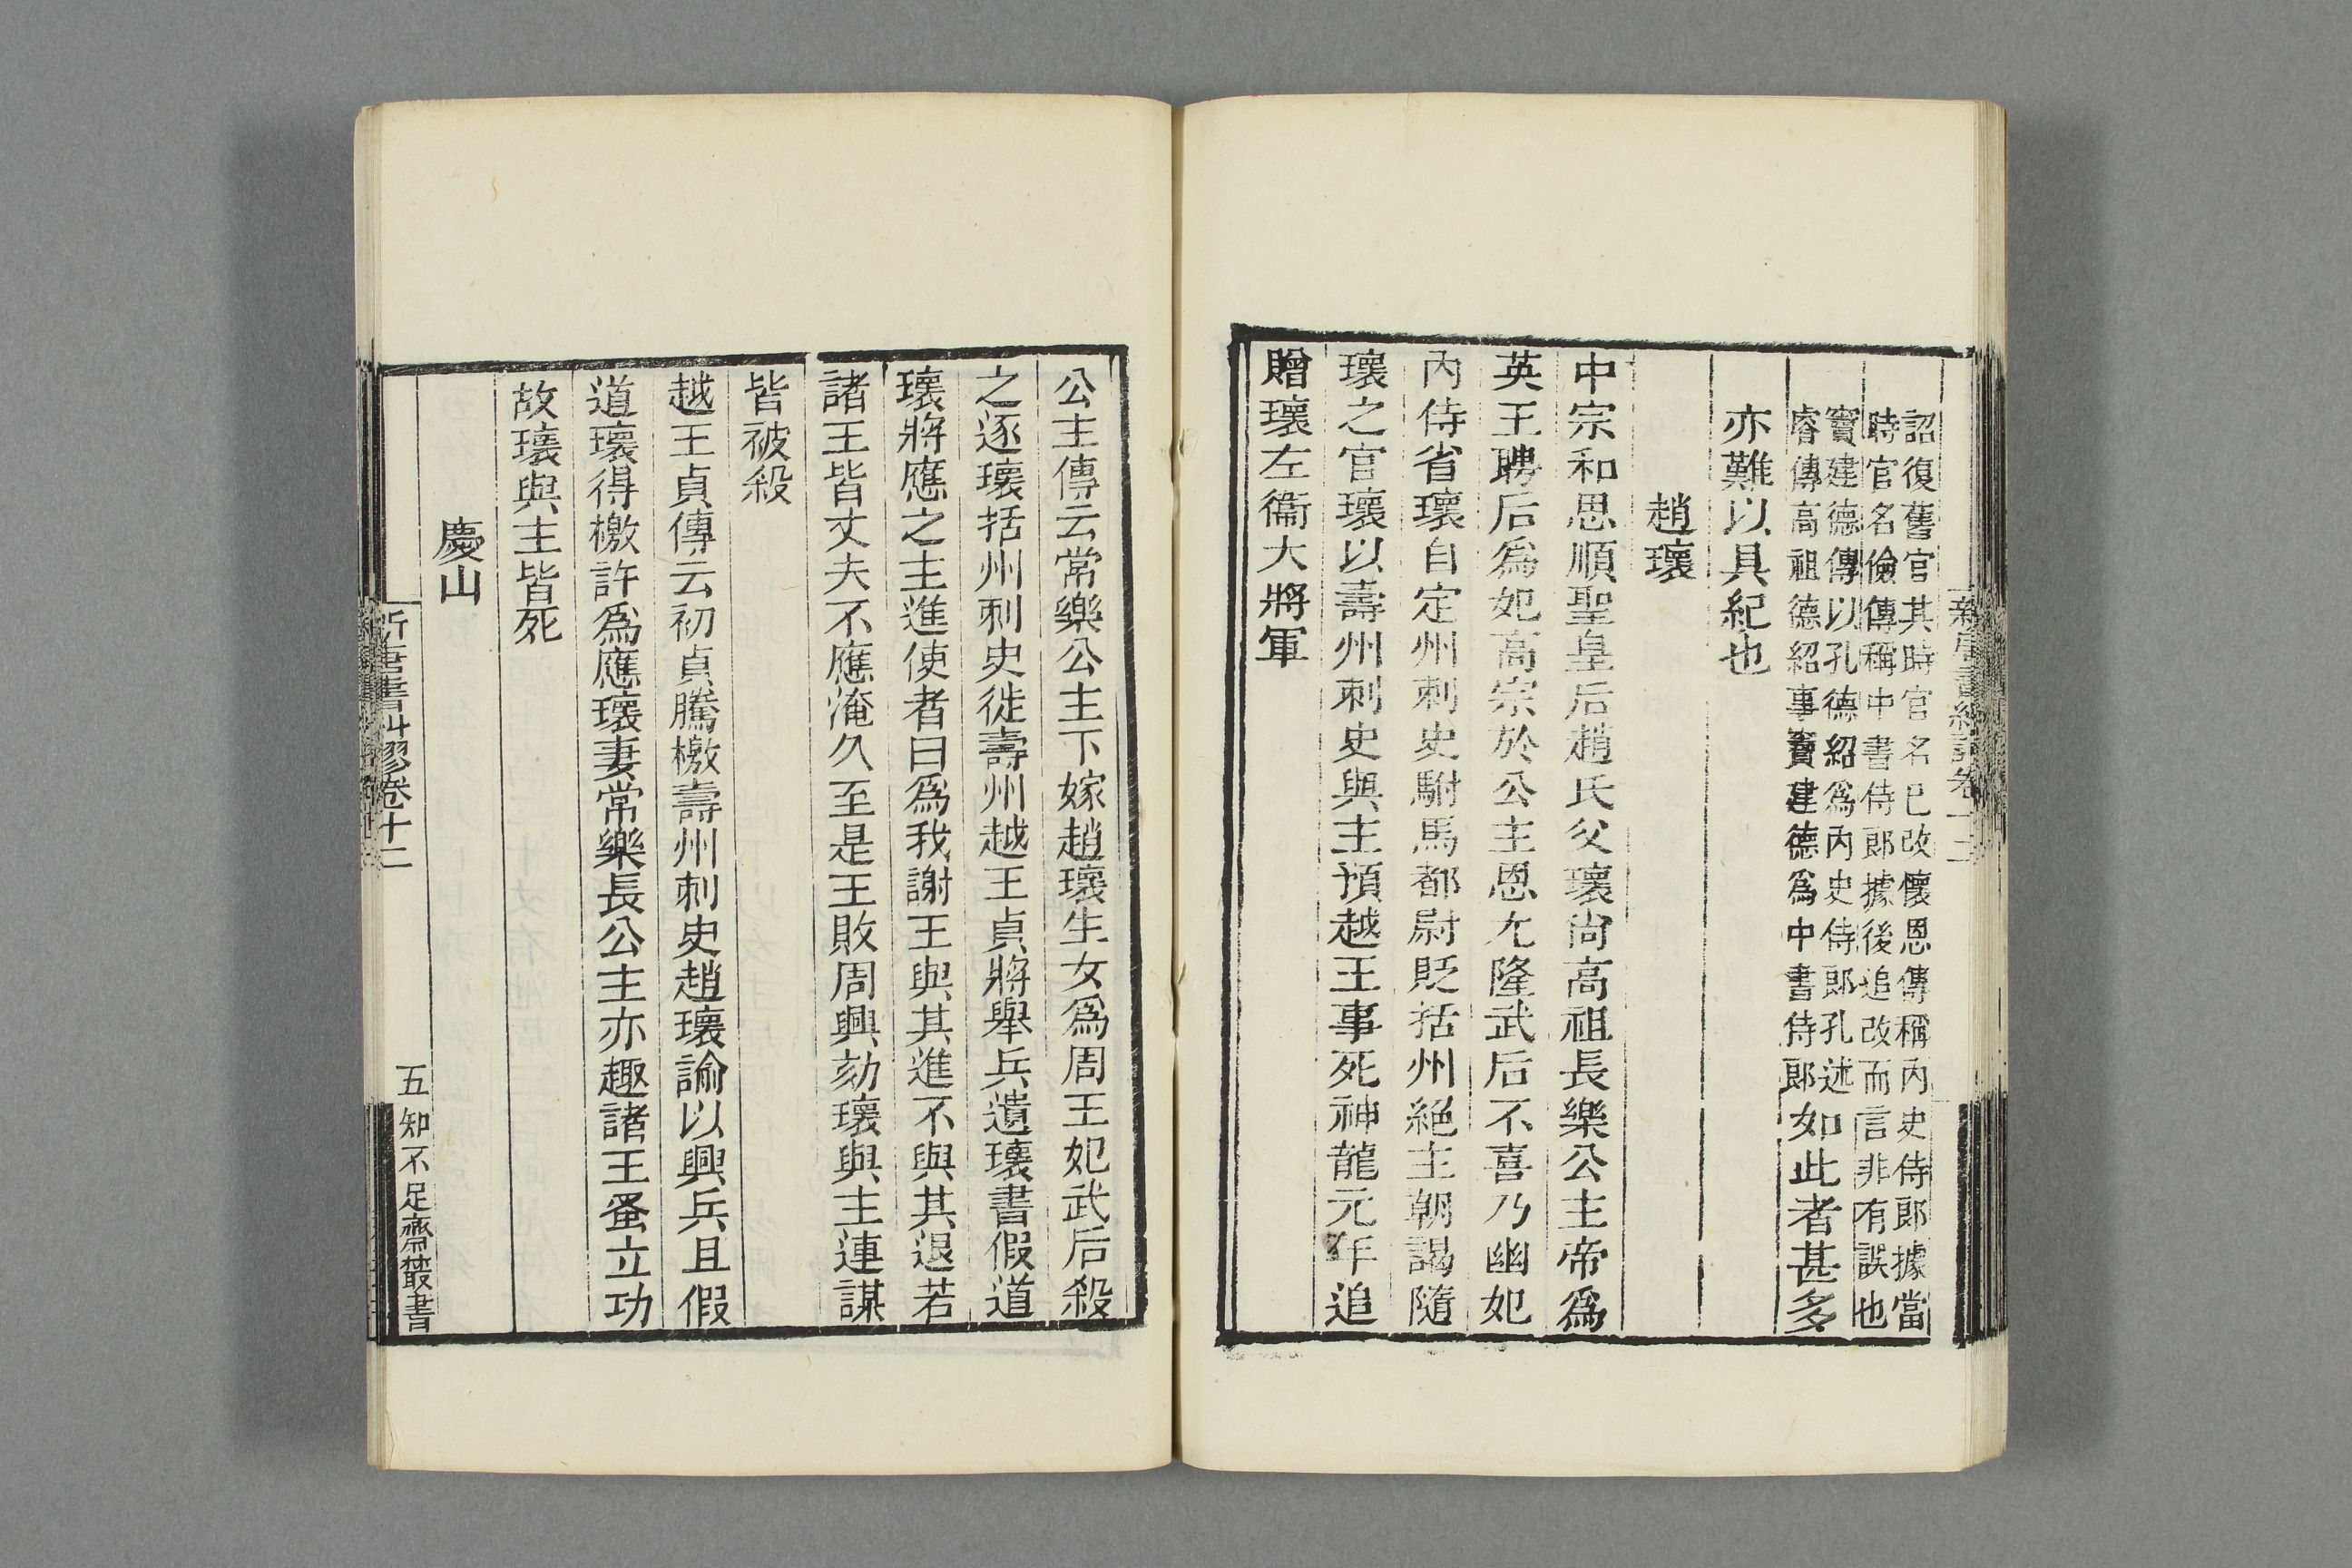 詔復舊官其時官名已改懷恩傳稱內史侍郎據當
時官名儉傳稱中書侍郎據後追改而言非有誤也
竇建德傳以孔德紹為內史侍郎孔述
睿傳高祖德紹事竇建德為中書侍郎如此者甚多
亦難以具紀也
趙瓌
中宗和思順聖皇后趙氏父瓌尚高祖長樂公主帝為
英王聘后為妃高宗於公主恩尤隆武后不喜乃幽妃
內侍省瓌自定州刺史駙馬都尉貶括州絕主朝謁隨
瓌之官瓌以壽州刺史與主預越王事死神龍元年追
贈瓌左衞大將軍
公主傳云常樂公主下嫁趙瓌生女為周王妃武后殺
之逐瓌括州刺史徙壽州越王貞將舉兵遺瓌書假道
瓌將應之主進使者曰為我謝王與其進不與其退若
諸王皆丈夫不應淹久至是王敗周興劾瓌與主連謀
皆被殺
越王貞傳云初貞騰檄壽州刺史趙瓌諭以興兵且假
道瓌得檄許為應瓌妻常樂長公主亦趣諸王蚤立功
故瓌與主皆死
慶山
新唐書糾謬卷十二
五
知不足齋叢書